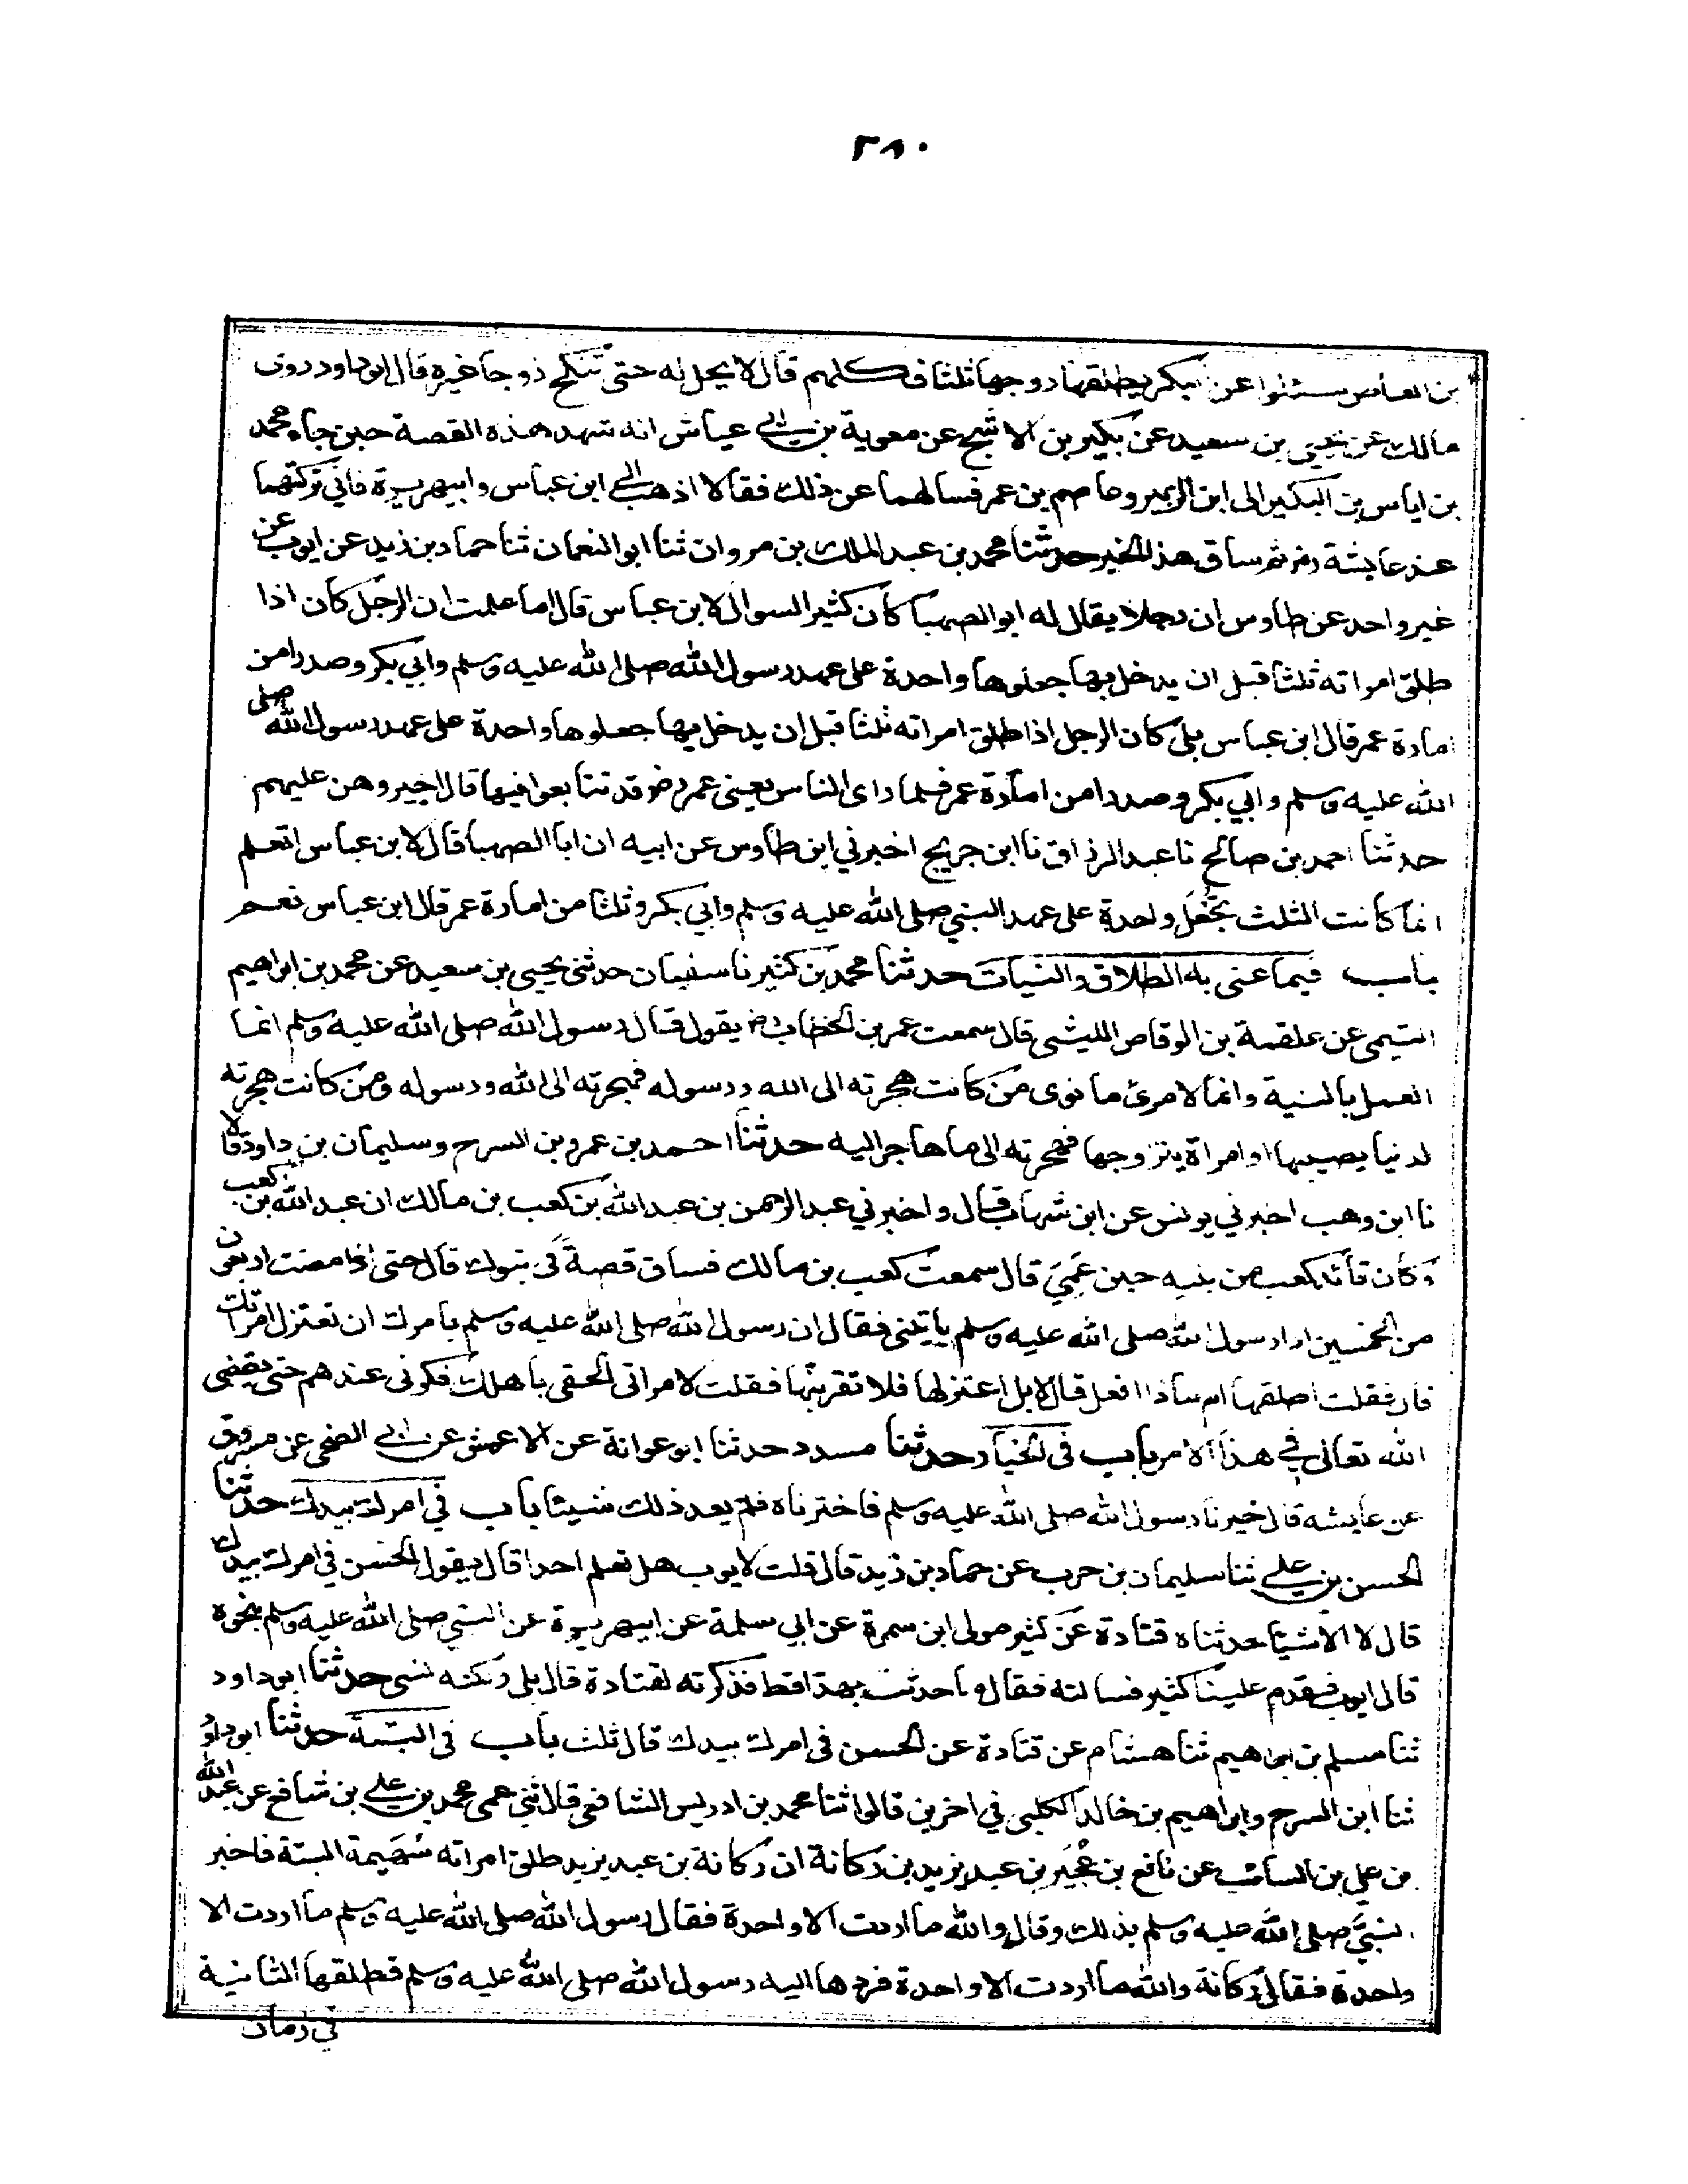 ٣٨٠
بن العاص سئلوا عن البكر يطلقها زوجها ثلثا فكلهم قال لا يحل له حتى تنكح زوجا غيره قال ابو داود روى
مالك عن يحيى بن سعيد عن بكير بن الاشج عن معوية بن ابي عياش انه شهد هذه القصة حين جاء محمد
بن اياس بن البكير الى ابن الزبير وعاصم بن عمر فسالهما عن ذلك فقالا اذهب الى ابن عباس وابيهريرة فاني تركتهما
عند عايشة رض ثم ساق هذا الخبر حدثنا محمد بن عبد الملك بن مروان ثنا ابو النعمان ثنا حماد بن زيد عن ايوب عن
غير واحد عن طاوس ان رجلا يقال له ابو الصهبا كان كثير السوال لابن عباس قال اما علمت ان الرجل كان اذا
طلق امراته ثلثا قبل ان يدخل بها جعلوها واحدة على عهد رسول الله صلى الله عليه وسلم وابي بكر وصدرا من
امارة عمر قال ابن عباس بلى كان الرجل اذا طلق امراته ثلثا قبل ان يدخل بها جعلوها واحدة على عهد رسول الله صلى
الله عليه وسلم وابي بكر وصدرا من امارة عمر فلما راى الناس يعني عمر رض قد تتابعوا فيها قال اجيروهن عليهم
حدثنا احمد بن صالح نا عبد الرزاق نا ابن جريج اخبرني ابن طاوس عن ابيه ان ابا الصهبا قال لابن عباس اتعلم
انما كانت الثلث تجعل واحدة على عهد النبي صلى الله عليه وسلم وابي بكر وثلثا من امارة عمر قال ابن عباس نعم
باب فيما عنى به الطلاق والنيات حدثنا محمد بن كثير نا سفيان حدثني يحيى بن سعيد عن محمد بن ابراهيم
التيمي عن علقمة بن الوقاص الليثي قال سمعت عمر بن الخطاب رض يقول قال رسول الله صلى الله عليه وسلم انما
العمل بالنية وانما لامرئ ما نوى من كانت هجرته الى الله ورسوله فهجرته الى الله ورسوله ومن كانت هجرته
لدنيا يصيبها او امراة يتزوجها فهجرته الى ما هاجر اليه حدثنا احمد بن عمرو بن السرح وسليمان بن داود قالا
نا ابن وهب اخبرني يونس عن ابن شهاب قال واخبرني عبد الرحمن بن عبد الله بن كعب بن مالك ان عبد الله بن كعب
وكان قائد كعب من بنيه حين عمي قال سمعت كعب بن مالك فساق قصة في تبوك قال حتى اذا مضت اربعون
من الخمسين اذا رسول رسول الله صلى الله عليه وسلم ياتيني فقال ان رسول الله صلى الله عليه وسلم يامرك ان تعتزل امراتك
قال فقلت اطلقها ام ماذا افعل قال لا بل اعتزلها فلا تقربنها فقلت لامراتي الحقي باهلك فكوني عندهم حتى يقضي
الله تعالى في هذا الامر باب في الخيار حدثنا مسدد حدثنا ابو عوانة عن الاعمش عن ابي الضحى عن مسروق
عن عايشه قال خيرنا رسول الله صلى الله عليه وسلم فاخترناه فلم يعد ذلك شيئا باب في امرك بيدك حدثنا
الحسن بن علي ثنا سليمان بن حرب عن حماد بن زيد قال قلت لايوب هل تعلم احدا قال يقول الحسن في امرك بيدك
قال لا الا شيئا حدثناه قتادة عن كثير مولى ابن سمرة عن ابي سلمة عن ابيهريرة عن النبي صلى الله عليه وسلم بنحوه
قال ايوب فقدم علينا كثير فسالته فقال ما حدثت بهذا قط فذكرته لقتادة قال بلى ولكنه نسي حدثنا ابو داود
ثنا مسلم بن ابراهيم ثنا هشام عن قتادة عن الحسن في امرك بيدك قال ثلث باب في البتة حدثنا ابو داود
ثنا ابن السرح وابراهيم بن خالد الكلبي في اخرين قالوا ثنا محمد بن ادريس الشافعي قال ثني عمي محمد بن علي بن شافع عن عبد الله
بن علي بن السائب عن نافع بن عجير بن عبد يزيد بن ركانة ان ركانة بن عبد يزيد طلق امراته سهيمة البتة فاخبر
النبي صلى الله عليه وسلم بذلك وقال والله ما اردت الا واحدة فقال رسول الله صلى الله عليه وسلم ما اردت الا
واحدة فقال ركانة والله ما اردت الا واحدة فردها اليه رسول الله صلى الله عليه وسلم فطلقها الثانية
في زمان